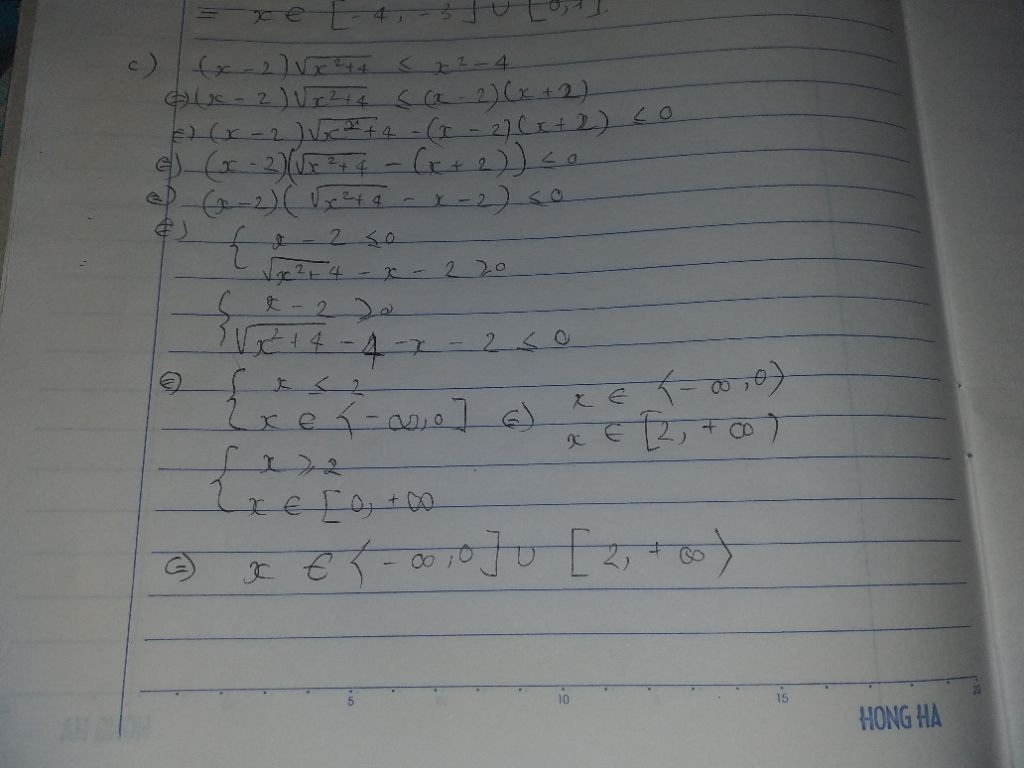 = x ∈ [-4, -3] ∪ [0,1].
c) (x-2)√x²+4 ≤ x²-4
⇔ (x-2)√x²+4 ≤ (x-2)(x+2)
⇔ (x-2)√x²+4 -(x-2)(x+2) ≤ 0
⇔ (x-2)(√x²+4 - (x+2)) ≤ 0
⇔ (x-2)( √x²+4 - x-2) ≤ 0
⇔ { x-2 ≤ 0
√x²+4 - x - 2 ≥ 0
{ x-2 ≥ 0
√x²+4 - 4 -x - 2 ≤ 0
⇔ { x ≤ 2
x ∈ (-∞,0] ⇔ x ∈ (-∞,0)
x ∈ [2, +∞)
{ x ≥ 2
x ∈ [0, +∞
⇔ x ∈ (-∞,0] ∪ [2, +∞)
5 10 15 20
HONG HA